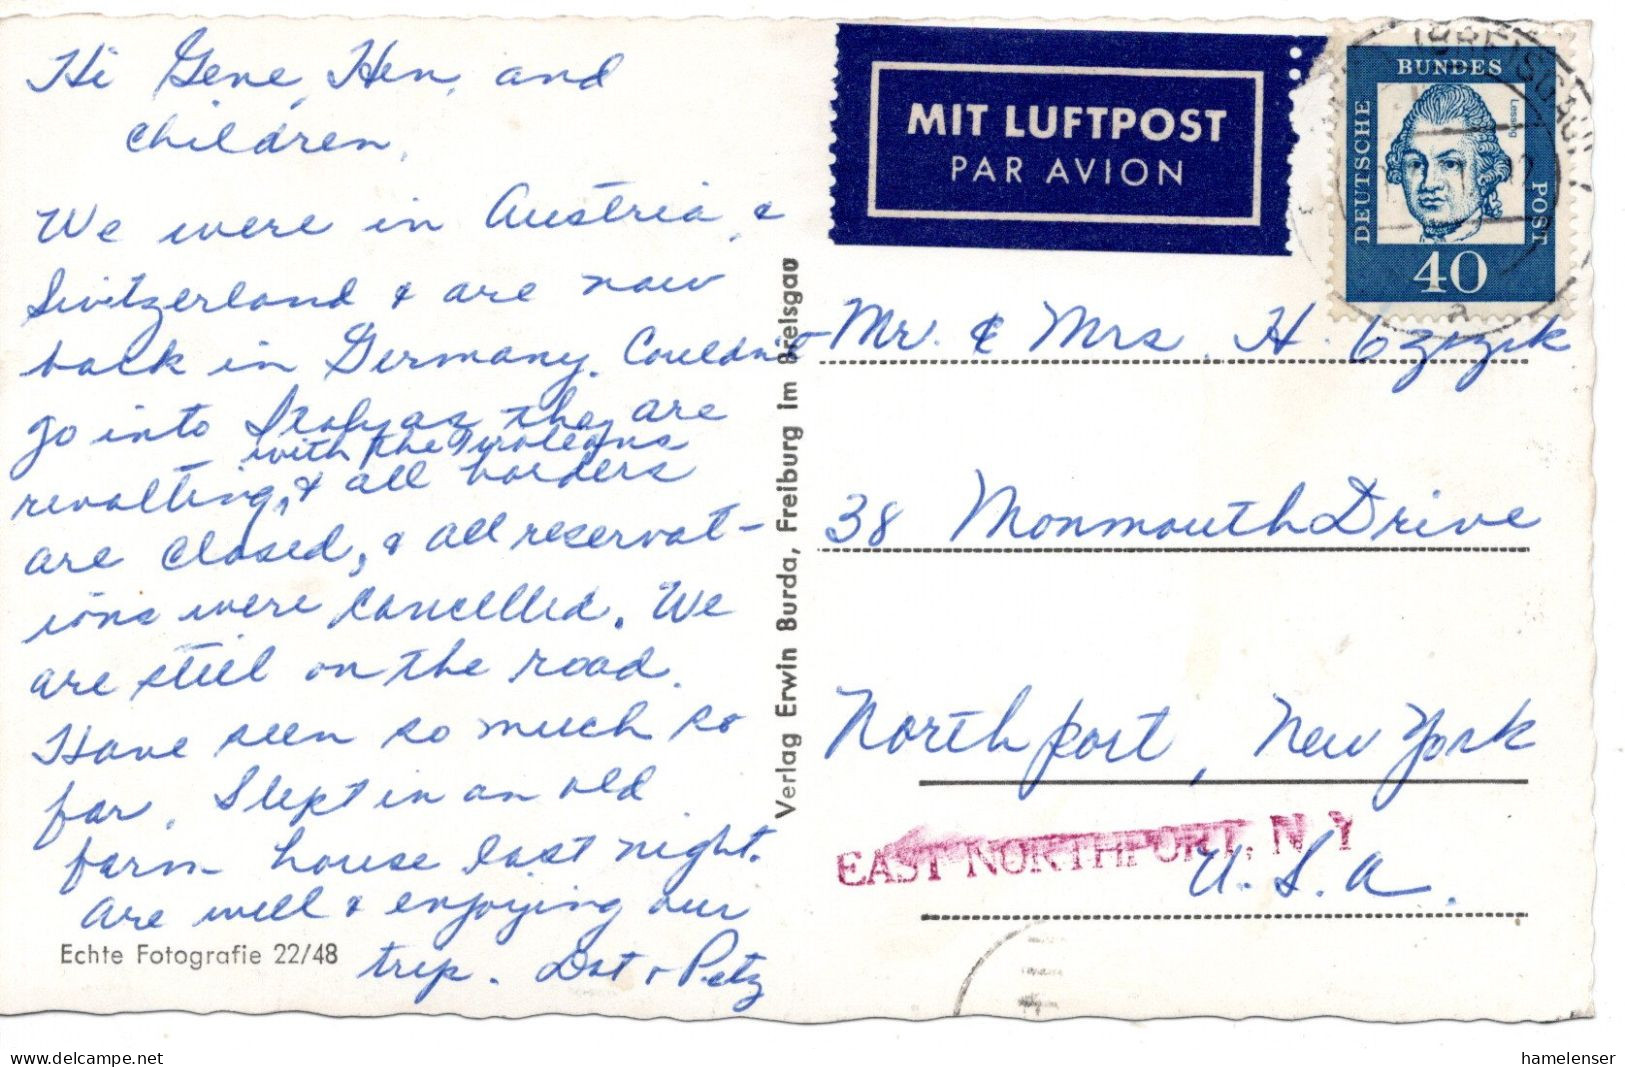 Hi Gene, Hen, and
children,
We were in Austria, &
Switzerland & are now
back in Germany. Couldn't
go into Italy as they are
with the Tyroleans
revolting, & all borders
are closed, & all reservat-
ions were cancelled. We
are still on the road.
Have seen so much so
far. Slept in an old
farm house last night.
Are well & enjoying our
trip. Dot & Petz
Echte Fotografie 22/48
Verlag Erwin Burda, Freiburg im Breisgau
MIT LUFTPOST
PAR AVION
DEUTSCHE
BUNDES
POST
Lessing
40
a
Mr. & Mrs. H.
38 Monmouth Drive
Northport, New York
EAST NORTHPORT, N Y
U.S.A.
hamelenser
delcampe.net